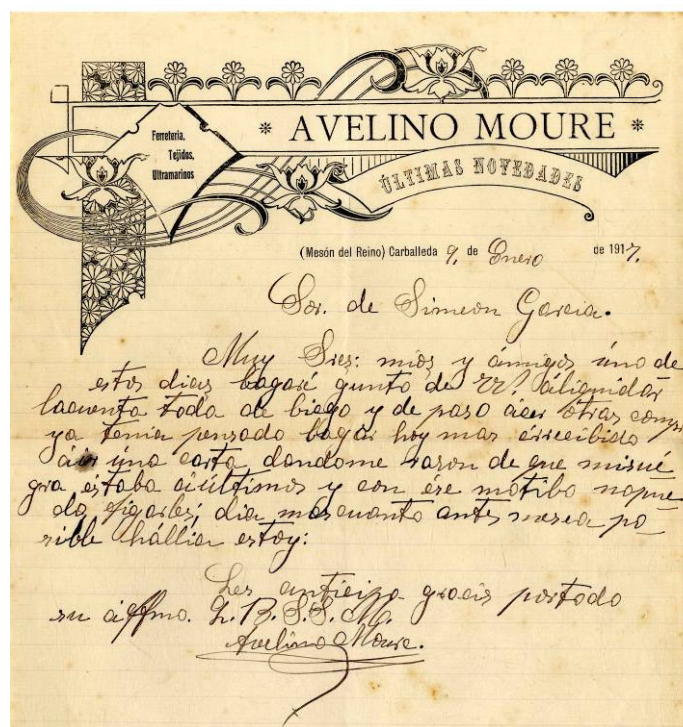 Ferretería,
Tejidos,
Ultramarinos
* AVELINO MOURE *
ÚLTIMAS NOVEDADES
(Mesón del Reino) Carballeda 9, de Enero de 1917.
Sor. de Simeon Garcia.
Muy Sres: mios y ámigos úno de
estos dias bagaré gunto de VV. áliquidar
lacuenta toda de biego y de paso ácer ótras comprs
ya tenia pensado bagar hoy mas érrecibido
áier úna carta dandome rason de que misué
gra éstaba áúltimos y con ése mótibo nopue
do figarles; dia mas cuanto antes mesea po_
sible hállia estoy:
Les anticipa gracis portodo
su áffmo. q. B. S. S. M.
Avelino Moure.